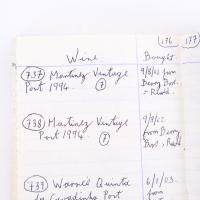 176 177
Wine. Bought
737 Martinez Vintage 9/8/02 from
Port 1994. 7 Berry Bros.
& Rudd.
738 Martinez Vintage 9/8/02
Port 1994. 7 from Berry
Bros, & Rudd
739 Warre's Quinta 6/1/03.
da Cavadinha Port from